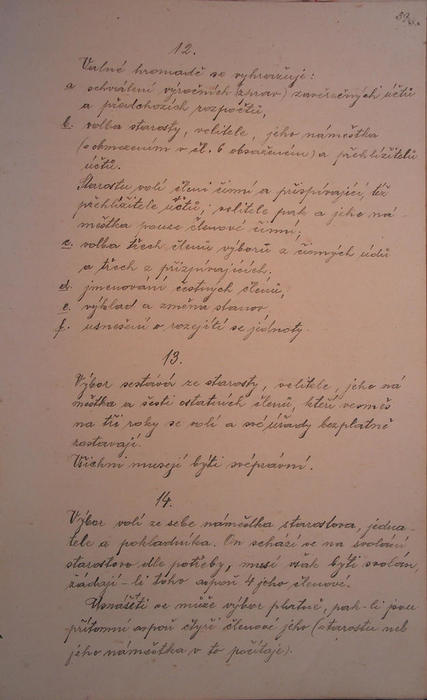 12.
Valné hromadě se vyhrazuje:
a schválení výročních zpráv) závěrečných účtů
a předchozích rozpočtů,
b. volba starosty, velitele, jeho náměstka
(s obmezením v čl. 6 obsaženém) a přehlížitelů
účtů.
Starostu volí členi činní a přispívající, též
přehlížitele účtů; velitele pak a jeho ná-
městka pouze členové činní;
c. volba třech členů výborů z činných údů
a třech z přizpívajících.
d. jmenování čestných členů,
e. výklad a změna stanov
f. usnešení o rozejití se jednoty.
13.
Výbor sestává ze starosty, velitele, jeho ná
městka a šesti ostatních členů, kteří vesměs
na tři roky se volí a své úřady bezplatně
zastávají
Všichni musejí býti svéprávní.
14.
Výbor volí ze sebe náměstka starostova, jedna-
tele a pokladníka. On schází se na svolání
starostovo dle potřeby, musí však býti svolán,
žádají-li toho aspoň 4 jeho členové.
Usnášeti se může výbor platně, pak-li jsou
přítomní aspoň čtyři členové jeho (starostu neb
jeho náměstka v to počítaje).